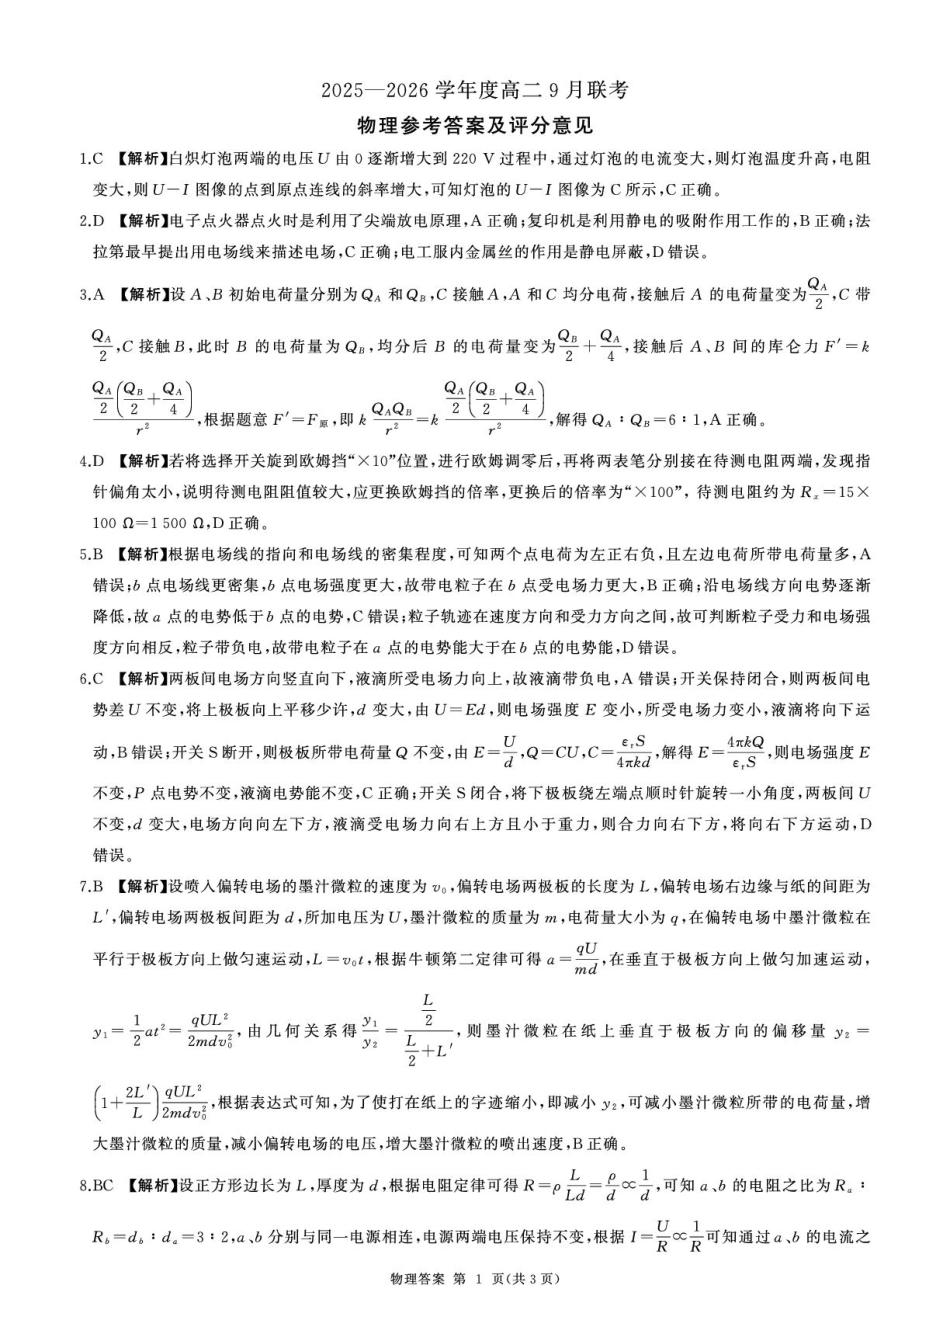 2025—2026 学年度高二 9 月联考
物理参考答案及评分意见
1.C 【解析】白炽灯泡两端的电压 U 由 0 逐渐增大到 220 V 过程中,通过灯泡的电流变大,则灯泡温度升高,电阻
变大,则 U-I 图像的点到原点连线的斜率增大,可知灯泡的 U-I 图像为 C 所示,C 正确。
2.D 【解析】电子点火器点火时是利用了尖端放电原理,A 正确;复印机是利用静电的吸附作用工作的,B 正确;法
拉第最早提出用电场线来描述电场,C 正确;电工服内金属丝的作用是静电屏蔽,D 错误。
3.A 【解析】设 A、B 初始电荷量分别为 Q_A 和 Q_B,C 接触 A,A 和 C 均分电荷,接触后 A 的电荷量变为 Q_A/2,C 带
Q_A/2,C 接触 B,此时 B 的电荷量为 Q_B,均分后 B 的电荷量变为 Q_B/2+Q_A/4,接触后 A、B 间的库仑力 F′=k
Q_A/2(Q_B/2+Q_A/4)/r²,根据题意 F′=F原,即 k Q_AQ_B/r²=k Q_A/2(Q_B/2+Q_A/4)/r²,解得 Q_A∶Q_B=6∶1,A 正确。
4.D 【解析】若将选择开关旋到欧姆挡“×10”位置,进行欧姆调零后,再将两表笔分别接在待测电阻两端,发现指
针偏角太小,说明待测电阻阻值较大,应更换欧姆挡的倍率,更换后的倍率为“×100”, 待测电阻约为 Rₓ=15×
100 Ω=1 500 Ω,D 正确。
5.B 【解析】根据电场线的指向和电场线的密集程度,可知两个点电荷为左正右负,且左边电荷所带电荷量多,A
错误;b 点电场线更密集,b 点电场强度更大,故带电粒子在 b 点受电场力更大,B 正确;沿电场线方向电势逐渐
降低,故 a 点的电势低于 b 点的电势,C 错误;粒子轨迹在速度方向和受力方向之间,故可判断粒子受力和电场强
度方向相反,粒子带负电,故带电粒子在 a 点的电势能大于在 b 点的电势能,D 错误。
6.C 【解析】两板间电场方向竖直向下,液滴所受电场力向上,故液滴带负电,A 错误;开关保持闭合,则两板间电
势差 U 不变,将上极板向上平移少许,d 变大,由 U=Ed,则电场强度 E 变小,所受电场力变小,液滴将向下运
动,B 错误;开关 S 断开,则极板所带电荷量 Q 不变,由 E=U/d,Q=CU,C=εᵣS/4πkd,解得 E=4πkQ/εᵣS,则电场强度 E
不变,P 点电势不变,液滴电势能不变,C 正确;开关 S 闭合,将下极板绕左端点顺时针旋转一小角度,两板间 U
不变,d 变大,电场方向向左下方,液滴受电场力向右上方且小于重力,则合力向右下方,将向右下方运动,D
错误。
7.B 【解析】设喷入偏转电场的墨汁微粒的速度为 v₀,偏转电场两极板的长度为 L,偏转电场右边缘与纸的间距为
L′,偏转电场两极板间距为 d,所加电压为 U,墨汁微粒的质量为 m,电荷量大小为 q,在偏转电场中墨汁微粒在
平行于极板方向上做匀速运动,L=v₀t,根据牛顿第二定律可得 a=qU/md,在垂直于极板方向上做匀加速运动,
y₁=1/2at²=qUL²/2mdv₀²,由几何关系得 y₁/y₂=(L/2)/(L/2+L′),则墨汁微粒在纸上垂直于极板方向的偏移量 y₂=
(1+2L′/L)qUL²/2mdv₀²,根据表达式可知,为了使打在纸上的字迹缩小,即减小 y₂,可减小墨汁微粒所带的电荷量,增
大墨汁微粒的质量,减小偏转电场的电压,增大墨汁微粒的喷出速度,B 正确。
8.BC 【解析】设正方形边长为 L,厚度为 d,根据电阻定律可得 R=ρL/Ld=ρ/d∝1/d,可知 a、b 的电阻之比为 Rₐ∶
R_b=d_b∶dₐ=3∶2,a、b 分别与同一电源相连,电源两端电压保持不变,根据 I=U/R∝1/R可知通过 a、b 的电流之
物理答案 第 1 页(共 3 页)